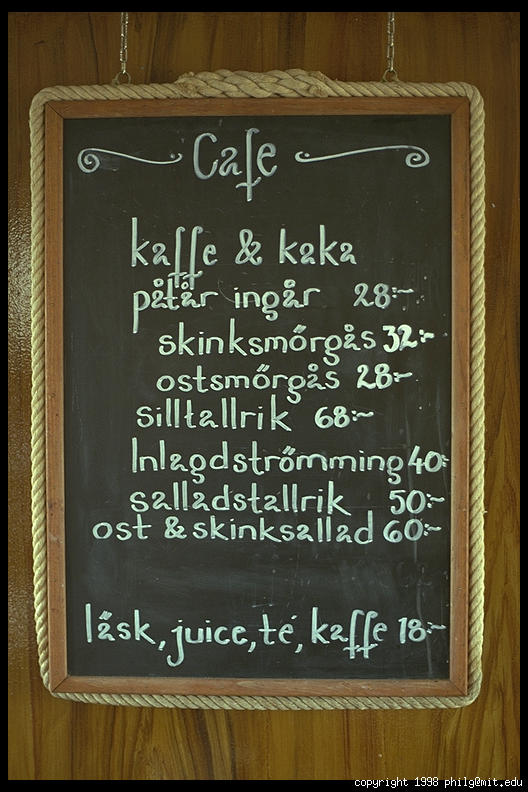 Cafe
kaffe & kaka
påtår ingår 28:-
skinksmörgås 32:-
ostsmörgås 28:-
silltallrik 68:-
Inlagdströmming 40:-
salladstallrik 50:-
ost & skinksallad 60:-
läsk, juice, te, kaffe 18:-
copyright 1998 philg@mit.edu